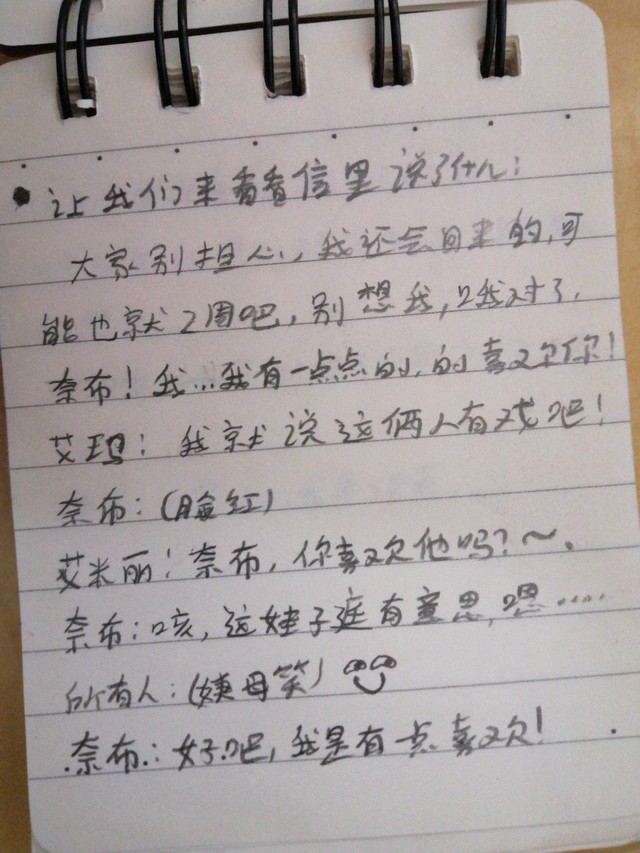 让我们来看看信里说了什么:
大家别担心,我还会回来的,可
能也就2周吧,别想我,只我对了,
奈布!我...我有一点点的,的喜欢你!
艾玛:我就说这俩人有戏吧!
奈布:(脸红)
艾米丽:奈布,你喜欢他吗?~。
奈布:咳,这娃子挺有意思,嗯.....
所有人:(姨母笑)
奈布.:好吧,我是有一点喜欢!